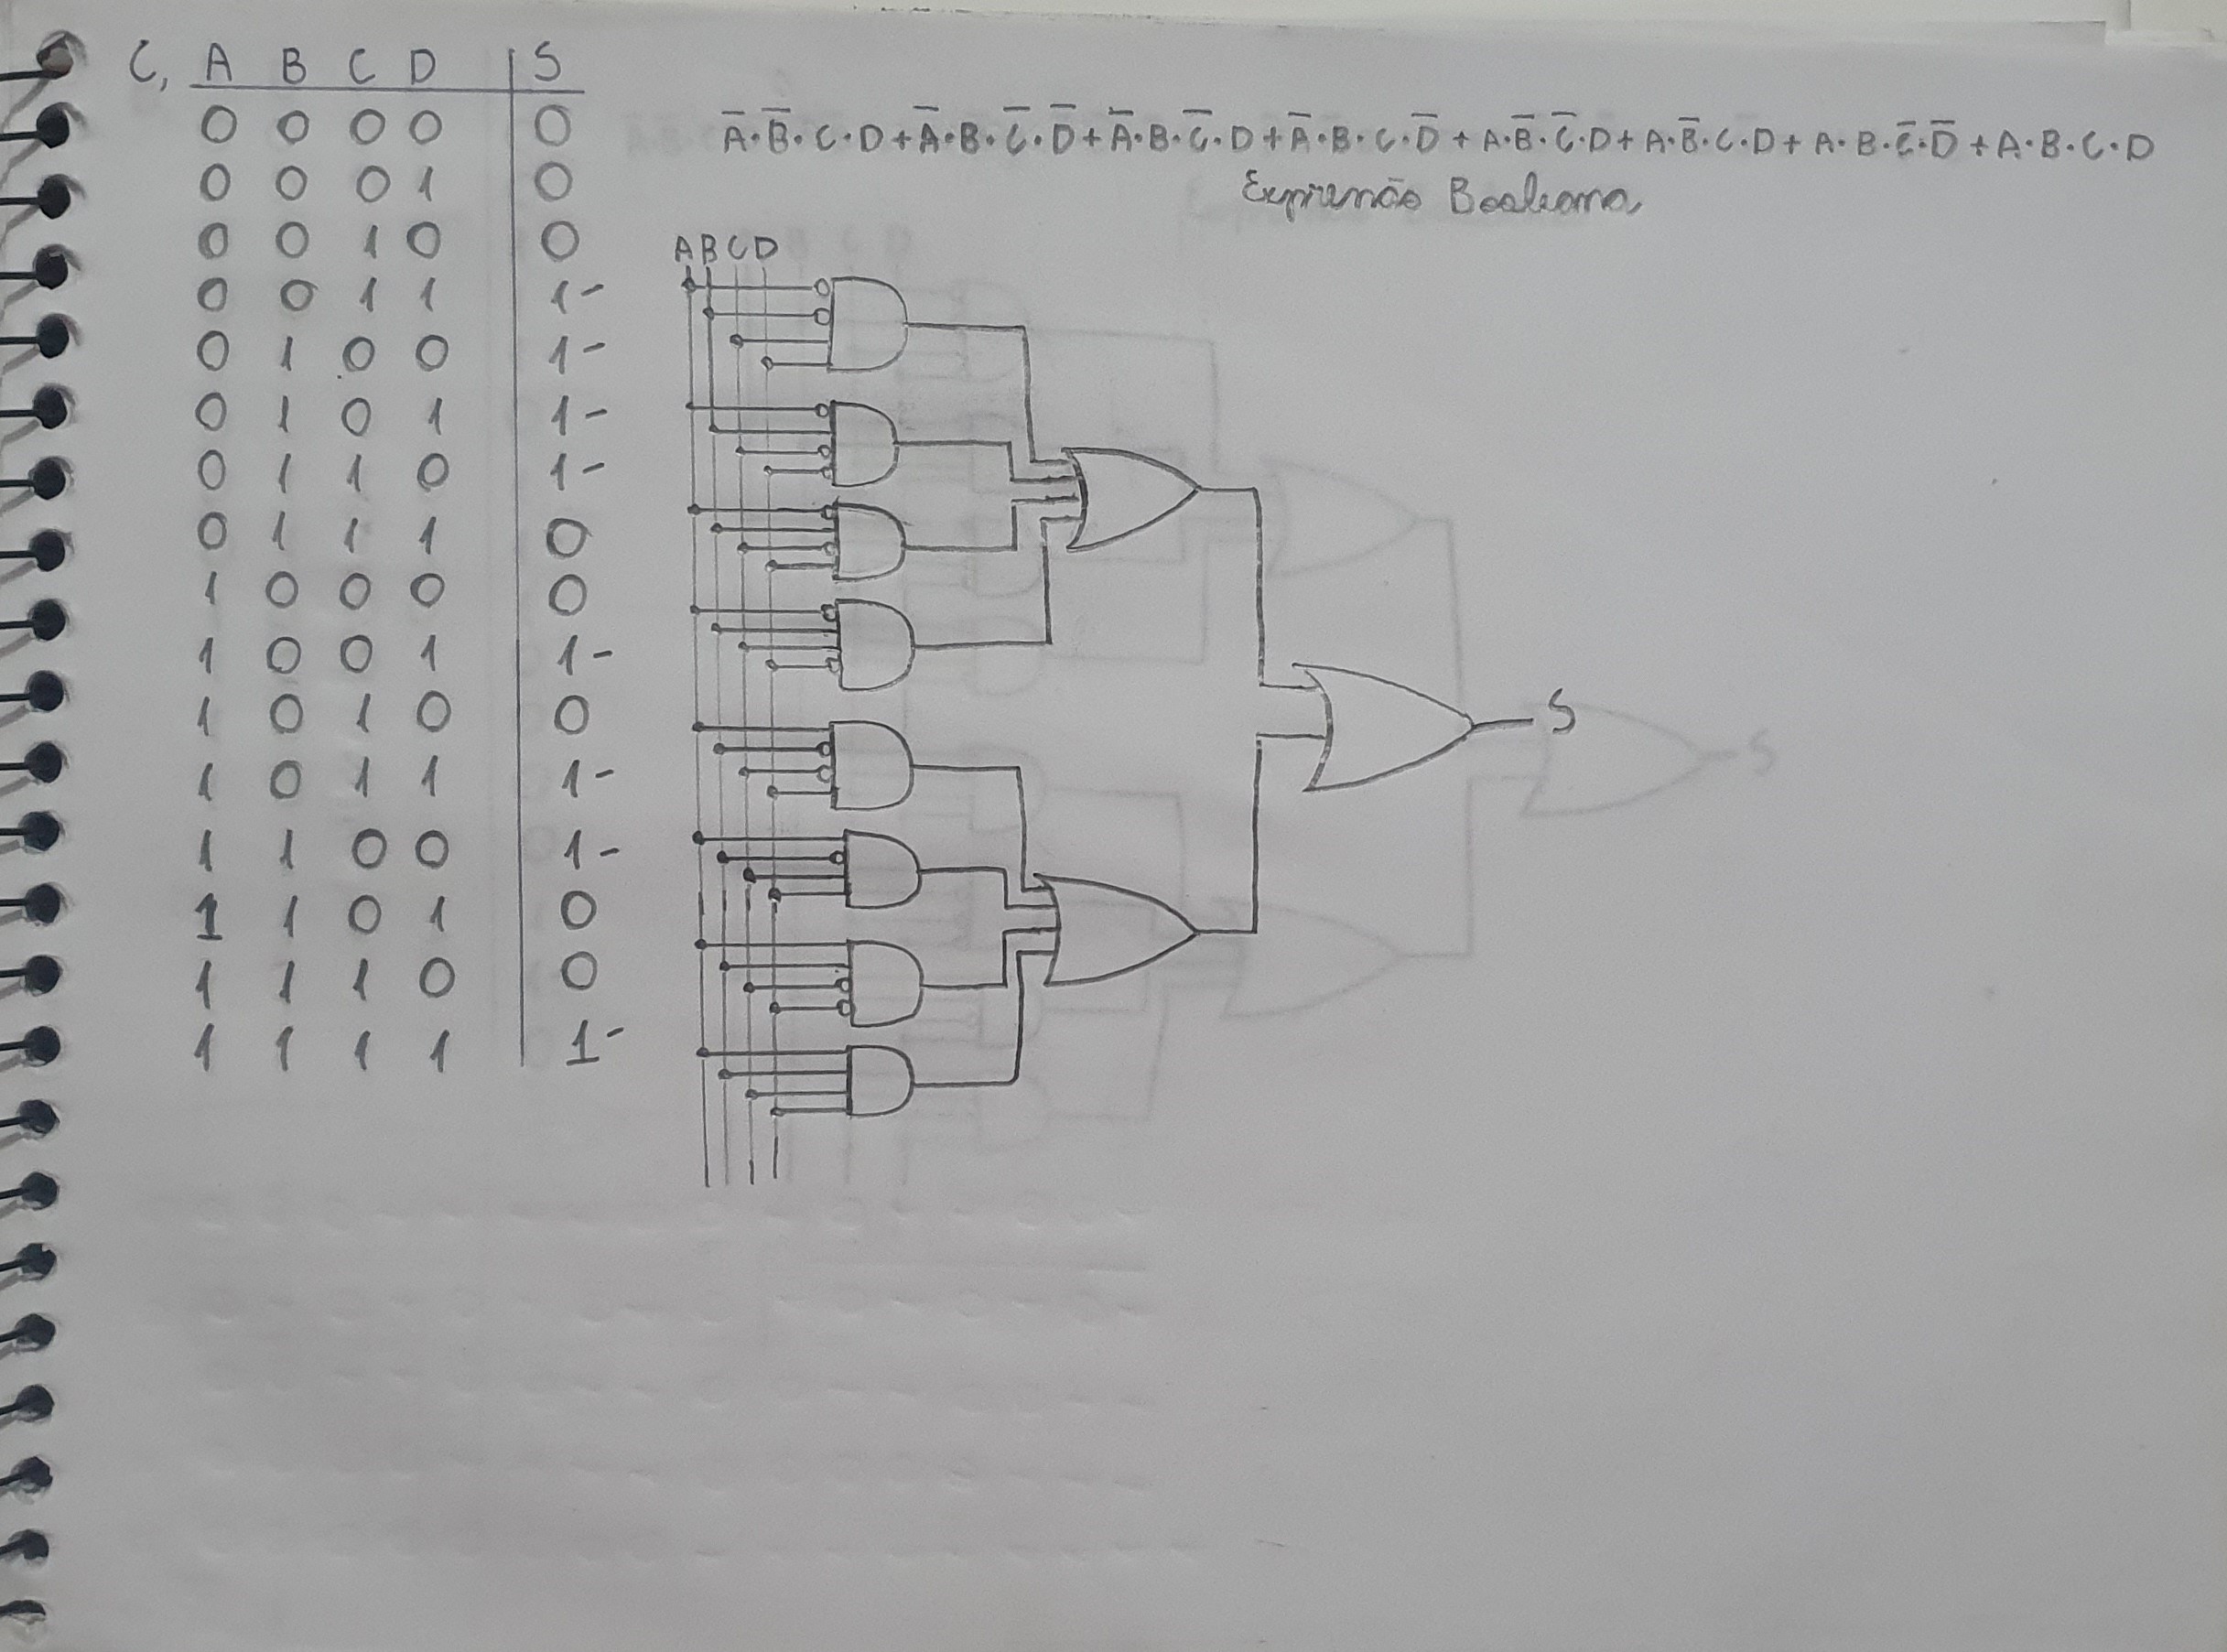 C, A B C D S
0 0 0 0 0
0 0 0 1 0
0 0 1 0 0
0 0 1 1 1-
0 1 0 0 1-
0 1 0 1 1-
0 1 1 0 1-
0 1 1 1 0
1 0 0 0 0
1 0 0 1 1-
1 0 1 0 0
1 0 1 1 1-
1 1 0 0 1-
1 1 0 1 0
1 1 1 0 0
1 1 1 1 1-
A̅·B̅·C·D+A̅·B·C̅·D̅+A̅·B·C̅·D+A̅·B·C·D̅+A·B̅·C̅·D+A·B̅·C·D+A·B·C̅·D̅+A·B·C·D
Expressão Booleana
A B C D
S